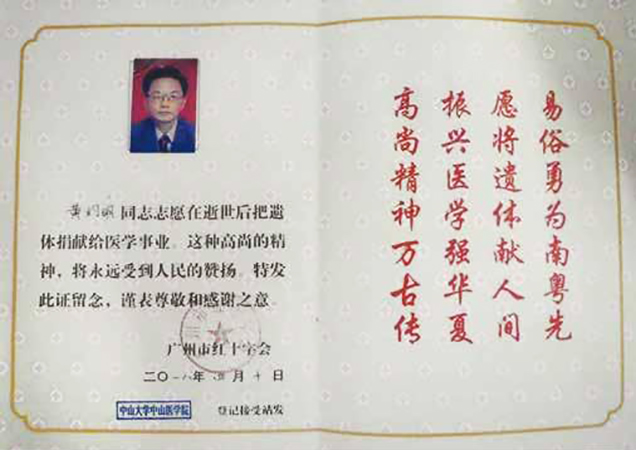 黄 同志志愿在逝世后把遗
体捐献给医学事业。这种高尚的精
神，将永远受到人民的赞扬。特发
此证留念，谨表尊敬和感谢之意。
广州市红十字会
二〇一八年 月十日
中山大学中山医学院 登记接受站发
易俗勇为南粤先
愿将遗体献人间
振兴医学强华夏
高尚精神万古传